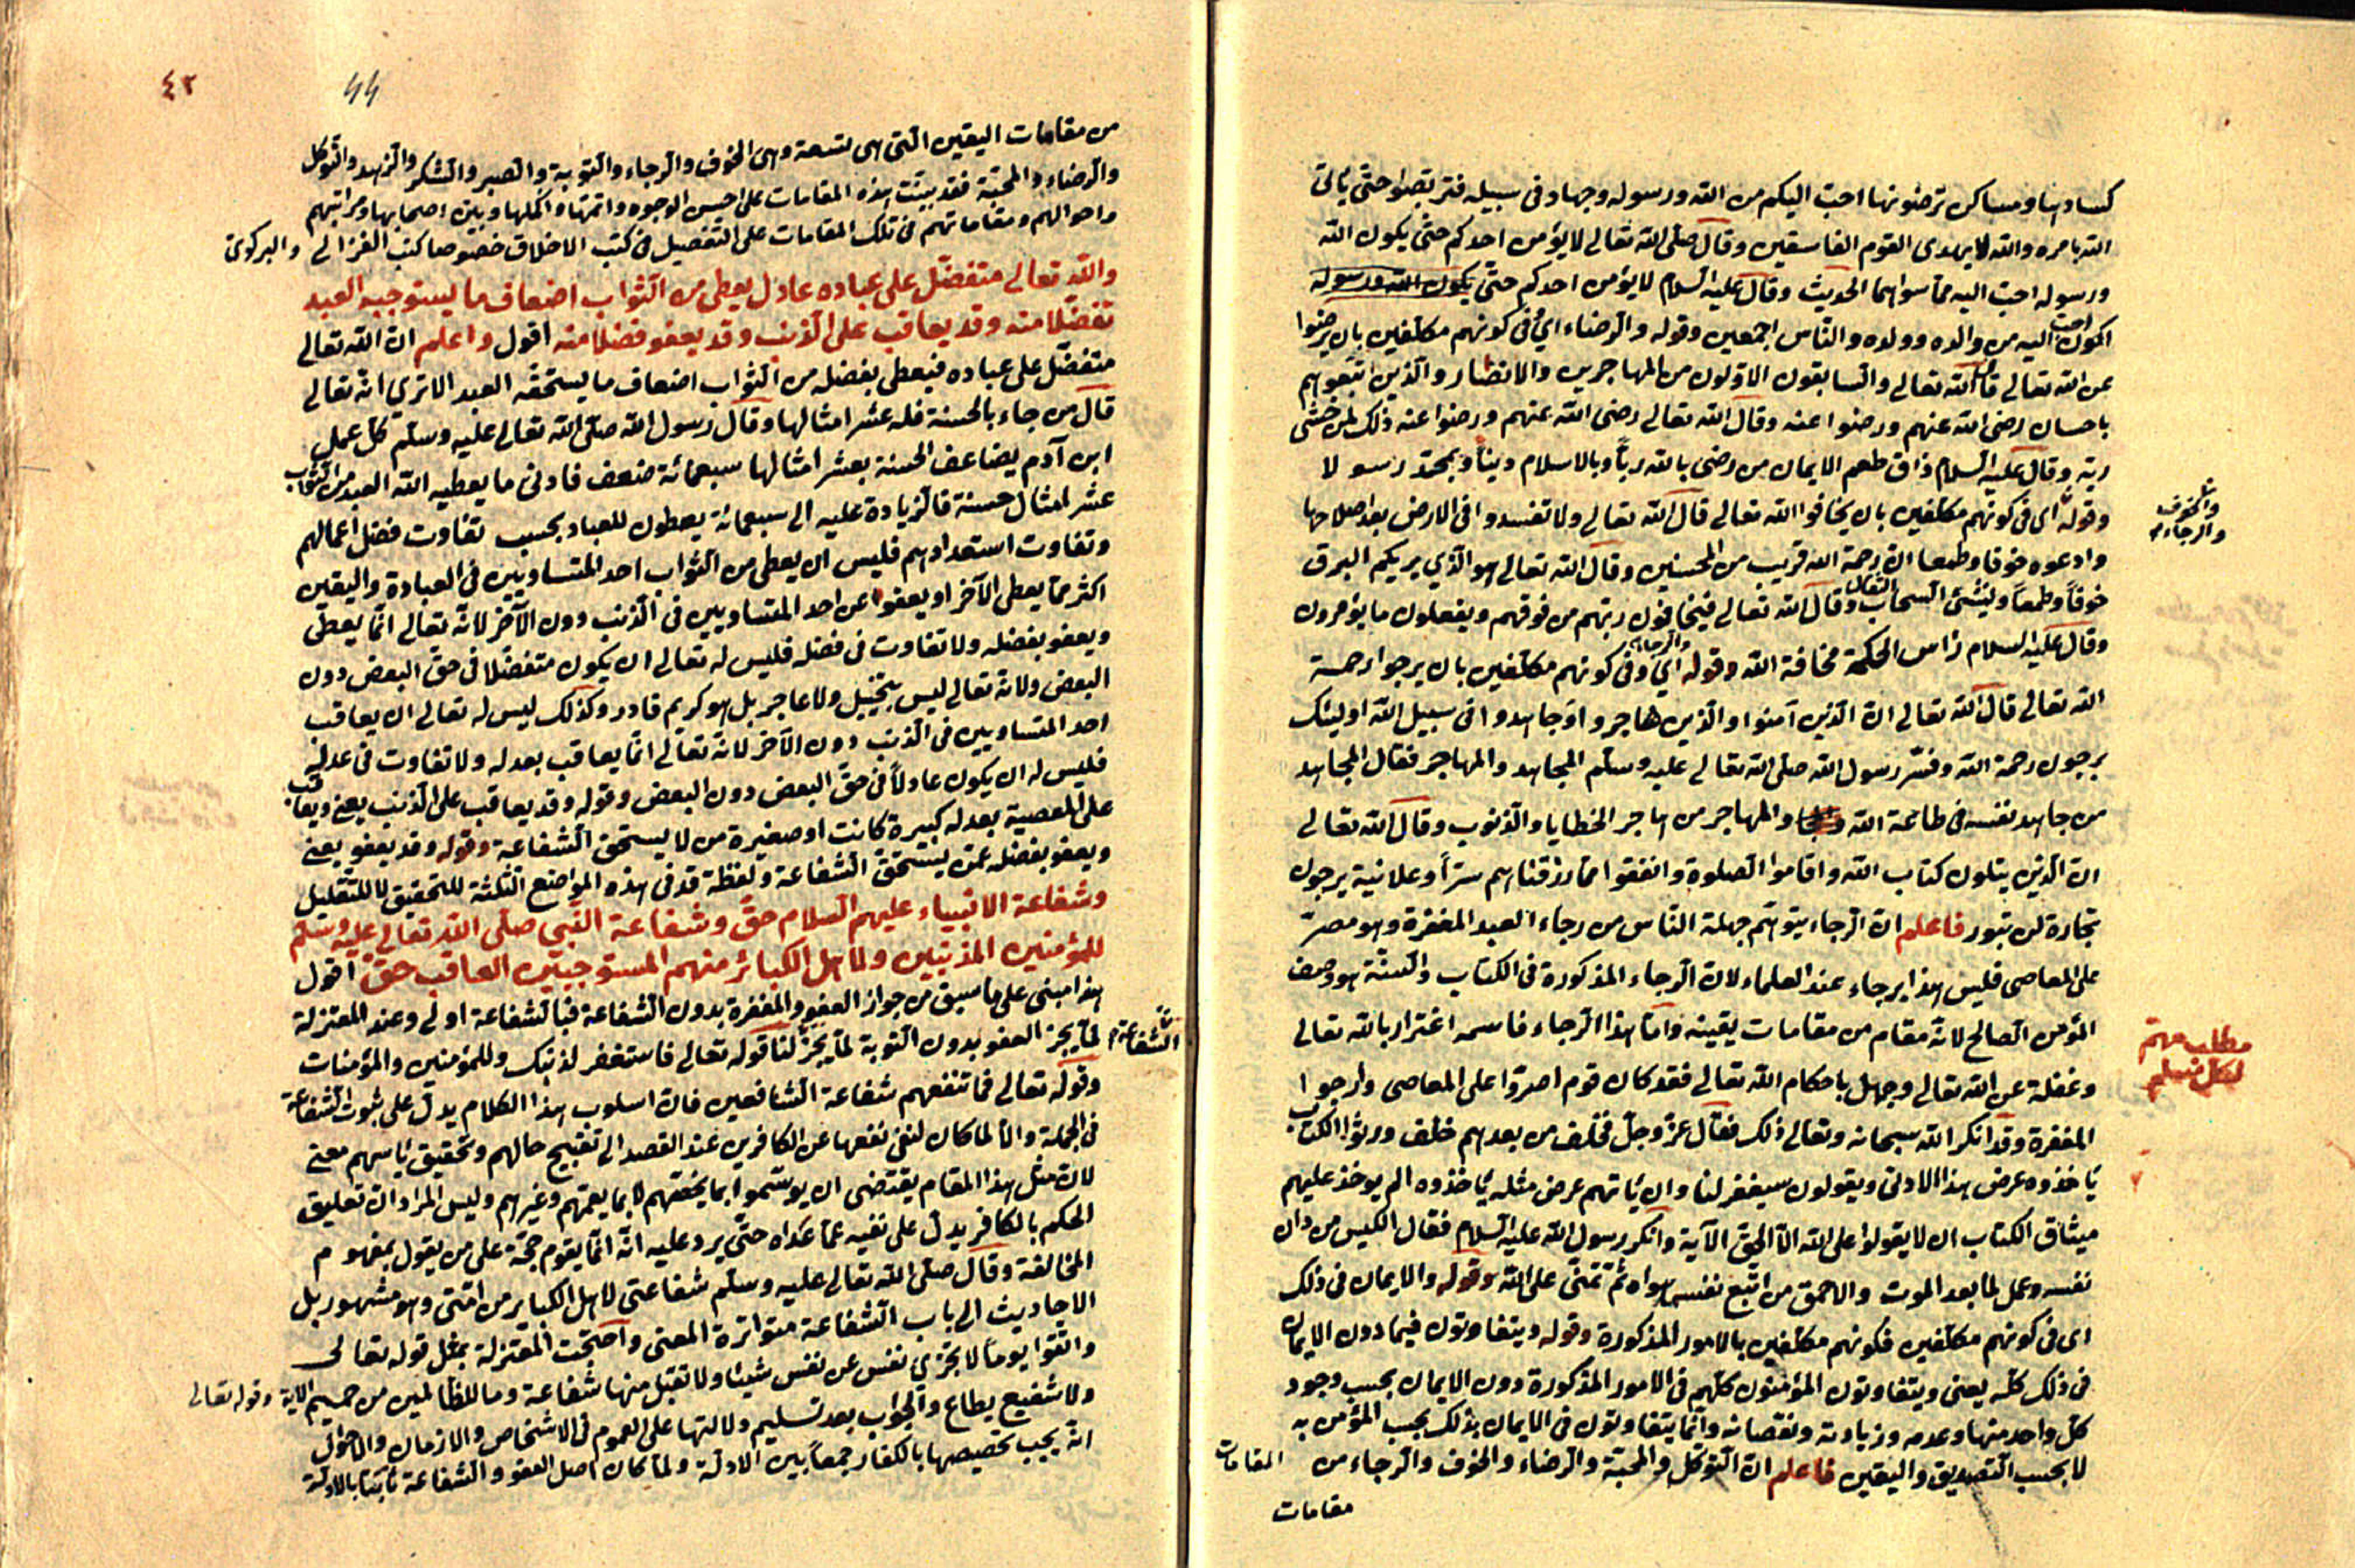 كسادها ومساكن ترضونها احب اليكم من الله ورسوله وجهاد فى سبيله فتربصوا حتى يأتى
الله بامره والله لا يهدى القوم الفاسقين وقال صلى الله تعالى لا يؤمن احدكم حتى يكون الله
ورسوله احب اليه مما سواهما الحديث وقال عليه السلام لا يؤمن احدكم حتى يكون الله ورسوله
اكون احب اليه من والده وولده والناس اجمعين وقوله والرضاء اى فى كونهم مكلفين بان يرضوا
عن الله تعالى قال الله تعالى والسابقون الاولون من المهاجرين والانصار والذين اتبعوهم
باحسان رضى الله عنهم ورضوا عنه وقال الله تعالى رضى الله عنهم ورضوا عنه ذلك لمن خشى
ربه وقال عليه السلام ذاق طعم الايمان من رضى بالله ربا وبالاسلام دينا وبمحمد رسولا
والخوف
والرجاء
وقوله اى فى كونهم مكلفين بان يخافوا الله تعالى قال الله تعالى ولا تفسدوا فى الارض بعد اصلاحها
وادعوه خوفا وطمعا ان رحمة الله قريب من المحسنين وقال الله تعالى هو الذي يريكم البرق
خوفا وطمعا وينشئ السحاب الثقال وقال الله تعالى يخافون ربهم من فوقهم ويفعلون ما يؤمرون
وقال عليه السلام رأس الحكمة مخافة الله وقوله والرجاء اى وفى كونهم مكلفين بان يرجوا رحمة
الله تعالى قال الله تعالى ان الذين آمنوا والذين هاجروا وجاهدوا فى سبيل الله اولئك
يرجون رحمة الله وفسر رسول الله صلى الله تعالى عليه وسلم المجاهد والمهاجر فقال المجاهد
من جاهد نفسه فى طاعة الله والمهاجر من هاجر الخطايا والذنوب وقال الله تعالى
ان الذين يتلون كتاب الله واقاموا الصلوة وانفقوا مما رزقناهم سرا وعلانية يرجون
تجارة لن تبور فاعلم ان الرجاء يتوهم جهلة الناس من رجاء العبد المغفرة وهو مصر
على المعاصى فليس هذا برجاء عند العلماء لان الرجاء المذكورة فى الكتاب والسنة هو وصف
المؤمن الصالح لانه مقام من مقامات يقينه واما هذا الرجاء فاسمه اغترار بالله تعالى
مطلب مهم
لكل مسلم
وغفلة عن الله تعالى وجهل باحكام الله تعالى فقد كان قوم اصروا على المعاصى وارجوا
المغفرة وقد انكر الله سبحانه وتعالى ذلك فقال عز وجل فخلف من بعدهم خلف ورثوا الكتاب
يأخذون عرض هذا الادنى ويقولون سيغفر لنا وان يأتهم عرض مثله يأخذوه الم يوخذ عليهم
ميثاق الكتاب ان لا يقولوا على الله الا الحق الآية وانكر رسول الله عليه السلام فقال الكيس من دان
نفسه وعمل لما بعد الموت والاحمق من اتبع نفسه هواه ثم تمنى على الله وقوله والايمان فى ذلك
اى فى كونهم مكلفين فكونهم مكلفين بالامور المذكورة وقوله ويتفاوتون فيما دون الايمان
فى ذلك كله يعنى ويتفاوتون المؤمنون كلهم فى الامور المذكورة دون الايمان بحسب وجود
كل واحد منها وعدمه وزيادته ونقصانه وانما يتفاوتون فى الايمان بذلك بحسب المؤمن به
لا بحسب التصديق واليقين فاعلم ان التوكل والمحبة والرضاء والخوف والرجاء من المقامات
مقامات
٤٢
44
من مقامات اليقين التى هى تسعة وهى الخوف والرجاء والتوبة والصبر والشكر والزهد والتوكل
والرضاء والمحبة فقد بينت هذه المقامات على احسن الوجوه واتمها واكملها وبين اصحابها ومراتبهم
واحوالهم ومقاماتهم فى تلك المقامات على التفصيل فى كتب الاخلاق خصوصا كتب الغزالى والبركوى
والله تعالى متفضل على عباده عادل يعطى من الثواب اضعاف ما يستوجبه العبد
تفضلا منه وقد يعاقب على الذنب وقد يعفو فضلا منه اقول واعلم ان الله تعالى
متفضل على عباده فيعطى بفضله من الثواب اضعاف ما يستحقه العبد الا ترى انه تعالى
قال من جاء بالحسنة فله عشر امثالها وقال رسول الله صلى الله تعالى عليه وسلم كل عمل
ابن آدم يضاعف الحسنة بعشر امثالها سبعمائة ضعف فادنى ما يعطيه الله العبد من الثواب
عشر امثال حسنة فالزيادة عليه الى سبعمائة يعطون للعباد بحسب تفاوت فضل اعمالهم
وتفاوت استعدادهم فليس ان يعطى من الثواب احد المتساويين فى العبادة واليقين
اكثر مما يعطى الآخر او يعفو عن احد المتساويين فى الذنب دون الآخر لانه تعالى انما يعطى
ويعفو بفضله ولا تفاوت فى فضله فليس له تعالى ان يكون متفضلا فى حق البعض دون
البعض ولانه تعالى ليس ببخيل ولا عاجز بل هو كريم قادر وكذلك ليس له تعالى ان يعاقب
احد المتساويين فى الذنب دون الآخر لانه تعالى انما يعاقب بعدله ولا تفاوت فى عدله
فليس له ان يكون عادلا فى حق البعض دون البعض وقوله وقد يعاقب على الذنب يعنى ويعاقب
على المعصية بعدله كبيرة كانت او صغيرة من لا يستحق الشفاعة وقوله وقد يعفو يعنى
ويعفو بفضله عمن يستحق الشفاعة ولفظة قد فى هذه المواضع الثلثة للتحقيق لا للتقليل
وشفاعة الانبياء عليهم السلام حق وشفاعة النبى صلى الله تعالى عليه وسلم
للمؤمنين المذنبين ولاهل الكبائر منهم المستوجبين العاقب حق اقول
هذا مبنى على ما سبق من جواز العفو والمغفرة بدون الشفاعة فبالشفاعة اولى وعند المعتزلة
الشفاعة لما يجز العفو بدون التوبة لم يجز لنا قوله تعالى فاستغفر لذنبك وللمؤمنين والمؤمنات
وقوله تعالى فما تنفعهم شفاعة الشافعين فان اسلوب هذا الكلام يدل على ثبوت الشفاعة
فى الجملة والا لما كان لنفى نفعها عن الكافرين عند القصد الى تقبيح حالهم وتحقيق يأسهم معنى
لان مثل هذا المقام يقتضى ان يوسموا بما يخصهم لا بما يعمهم وغيرهم وليس المراد ان تعليق
الحكم بالكافر يدل على نفيه عما عداه حتى يرد عليه انه انما يقوم حجة على من يقول بمفهوم
المخالفة وقال صلى الله تعالى عليه وسلم شفاعتى لاهل الكبائر من امتى وهو مشهور بل
الاحاديث الى باب الشفاعة متواترة المعنى واحتجت المعتزلة بمثل قوله تعالى
واتقوا يوما لا تجزى نفس عن نفس شيئا ولا تقبل منها شفاعة وما للظالمين من حميم الآية وقوله تعالى
ولا شفيع يطاع والجواب بعد تسليم دلالتها على العموم فى الاشخاص والازمان والاحوال
انه يجب تخصيصها بالكفار جمعا بين الادلة ولما كان اصل العفو والشفاعة ثابتا بالادلة